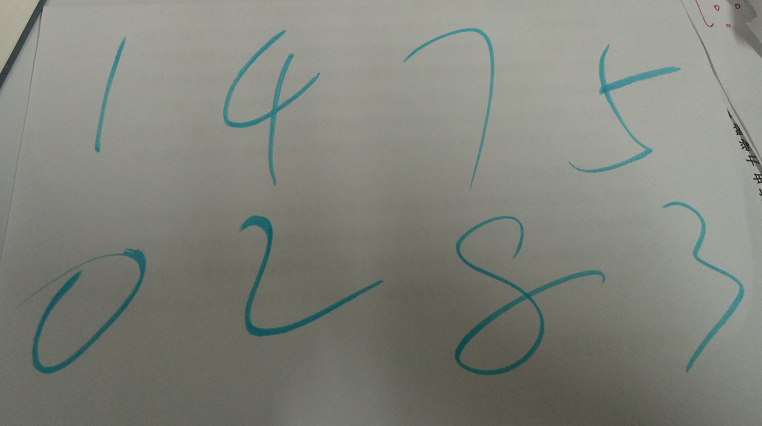 1 4 7 5
0 2 8 3